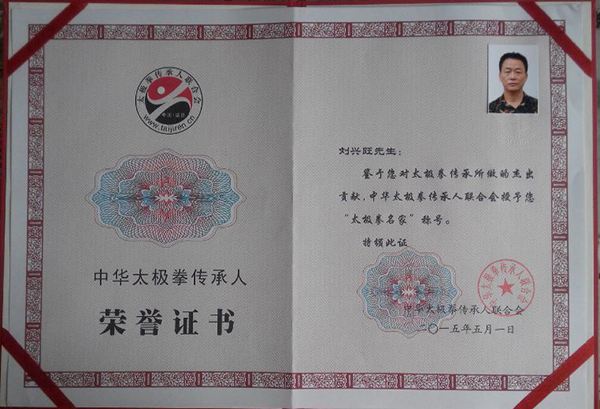 太极拳传承人联合会
www.taijiren.cn
中华太极拳传承人
荣誉证书
刘兴旺先生：
鉴于您对太极拳传承所做的杰出
贡献，中华太极拳传承人联合会授予您
“太极拳名家”称号。
特颁此证
中华太极拳传承人联合会
中华太极拳传承人联合会
二〇一五年五月一日